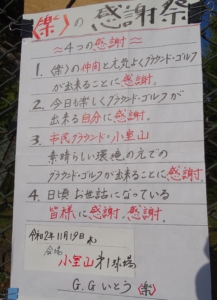 《楽》の感謝祭
≈4つの感謝≈
1. 《楽》の仲間と元気よくグラウンド・ゴルフ
が出来ることに感謝。
2. 今日も楽しくグラウンド・ゴルフが
出来る自分に感謝。
3. 市民グラウンド・小室山
素晴らしい環境の元での
グラウンド・ゴルフが出来ることに感謝。
4. 日頃お世話になっている
皆様に感謝。感謝。
令和2年11月19日(木)
会場
小室山第1球場
G.Gいとう《楽》